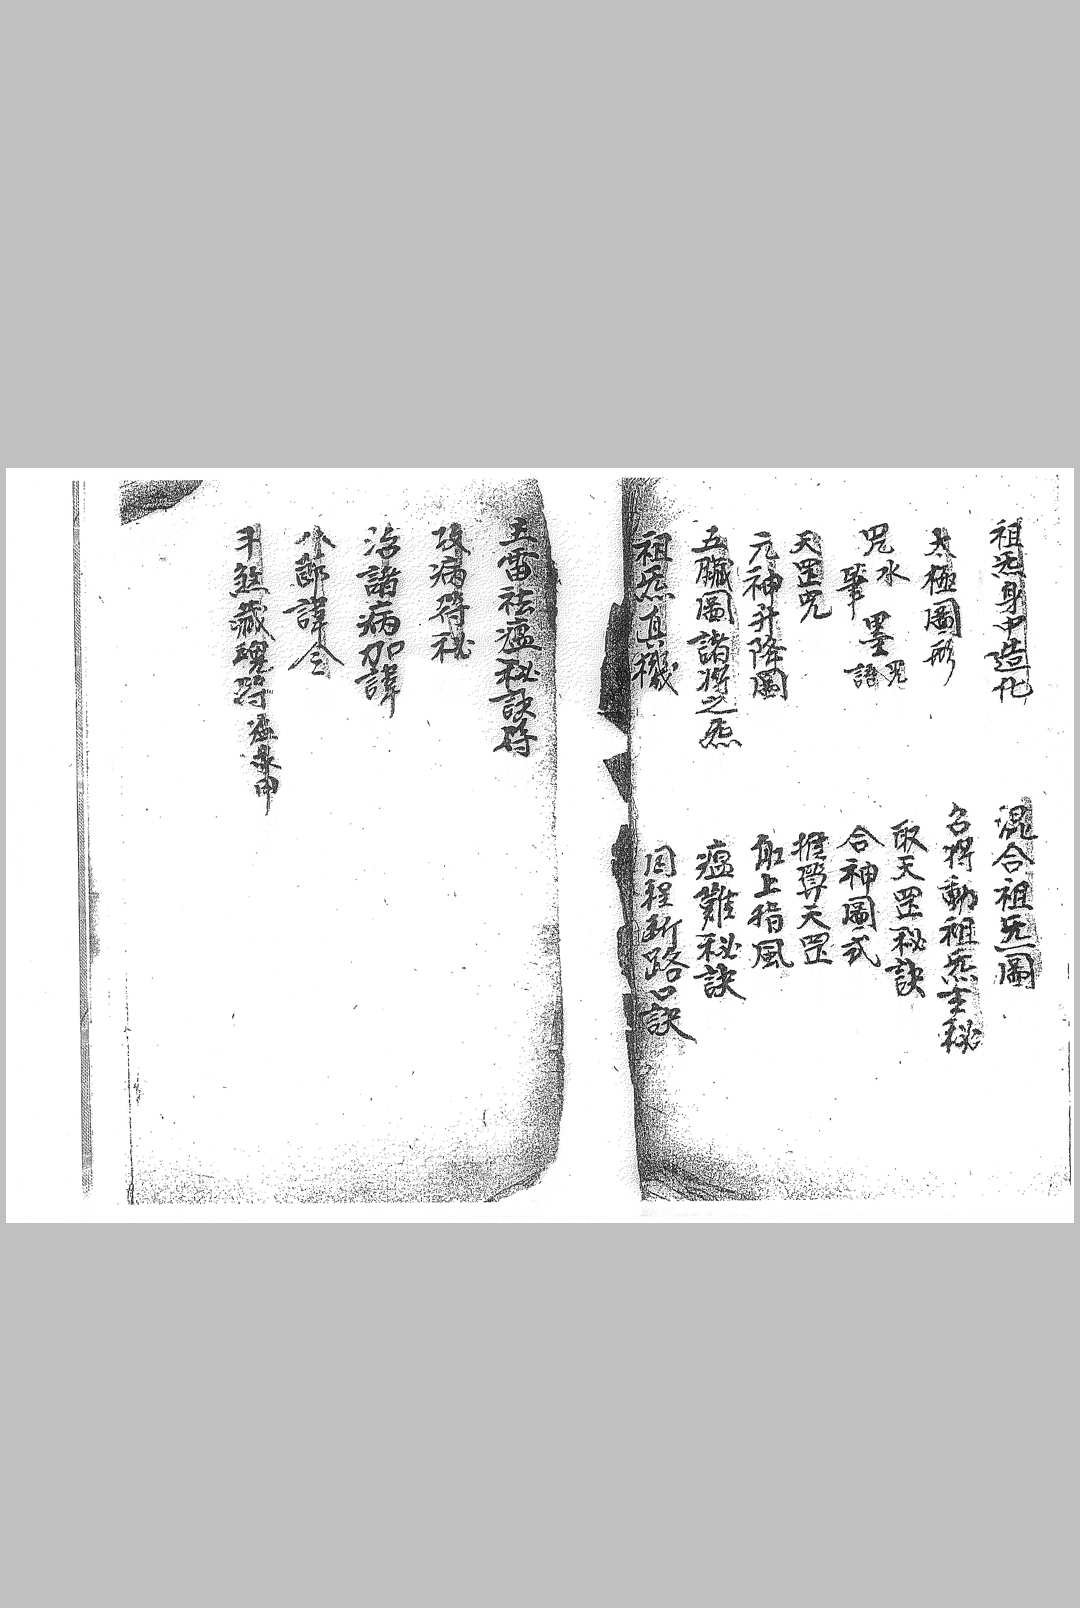 祖炁身中造化
混合祖炁圖
太極圖形
召將動祖炁主秘
咒水 筆 墨 咒語
取天罡秘訣
天罡咒
合神圖式
元神升降圖
推算天罡
五臟圖諸將之炁
缸上指風
祖炁真機
瘟難秘訣
同程斷路口訣
五雷祛瘟秘訣符
攻病符秘
治諸病加諱
外部諱令
千煞藏魂符